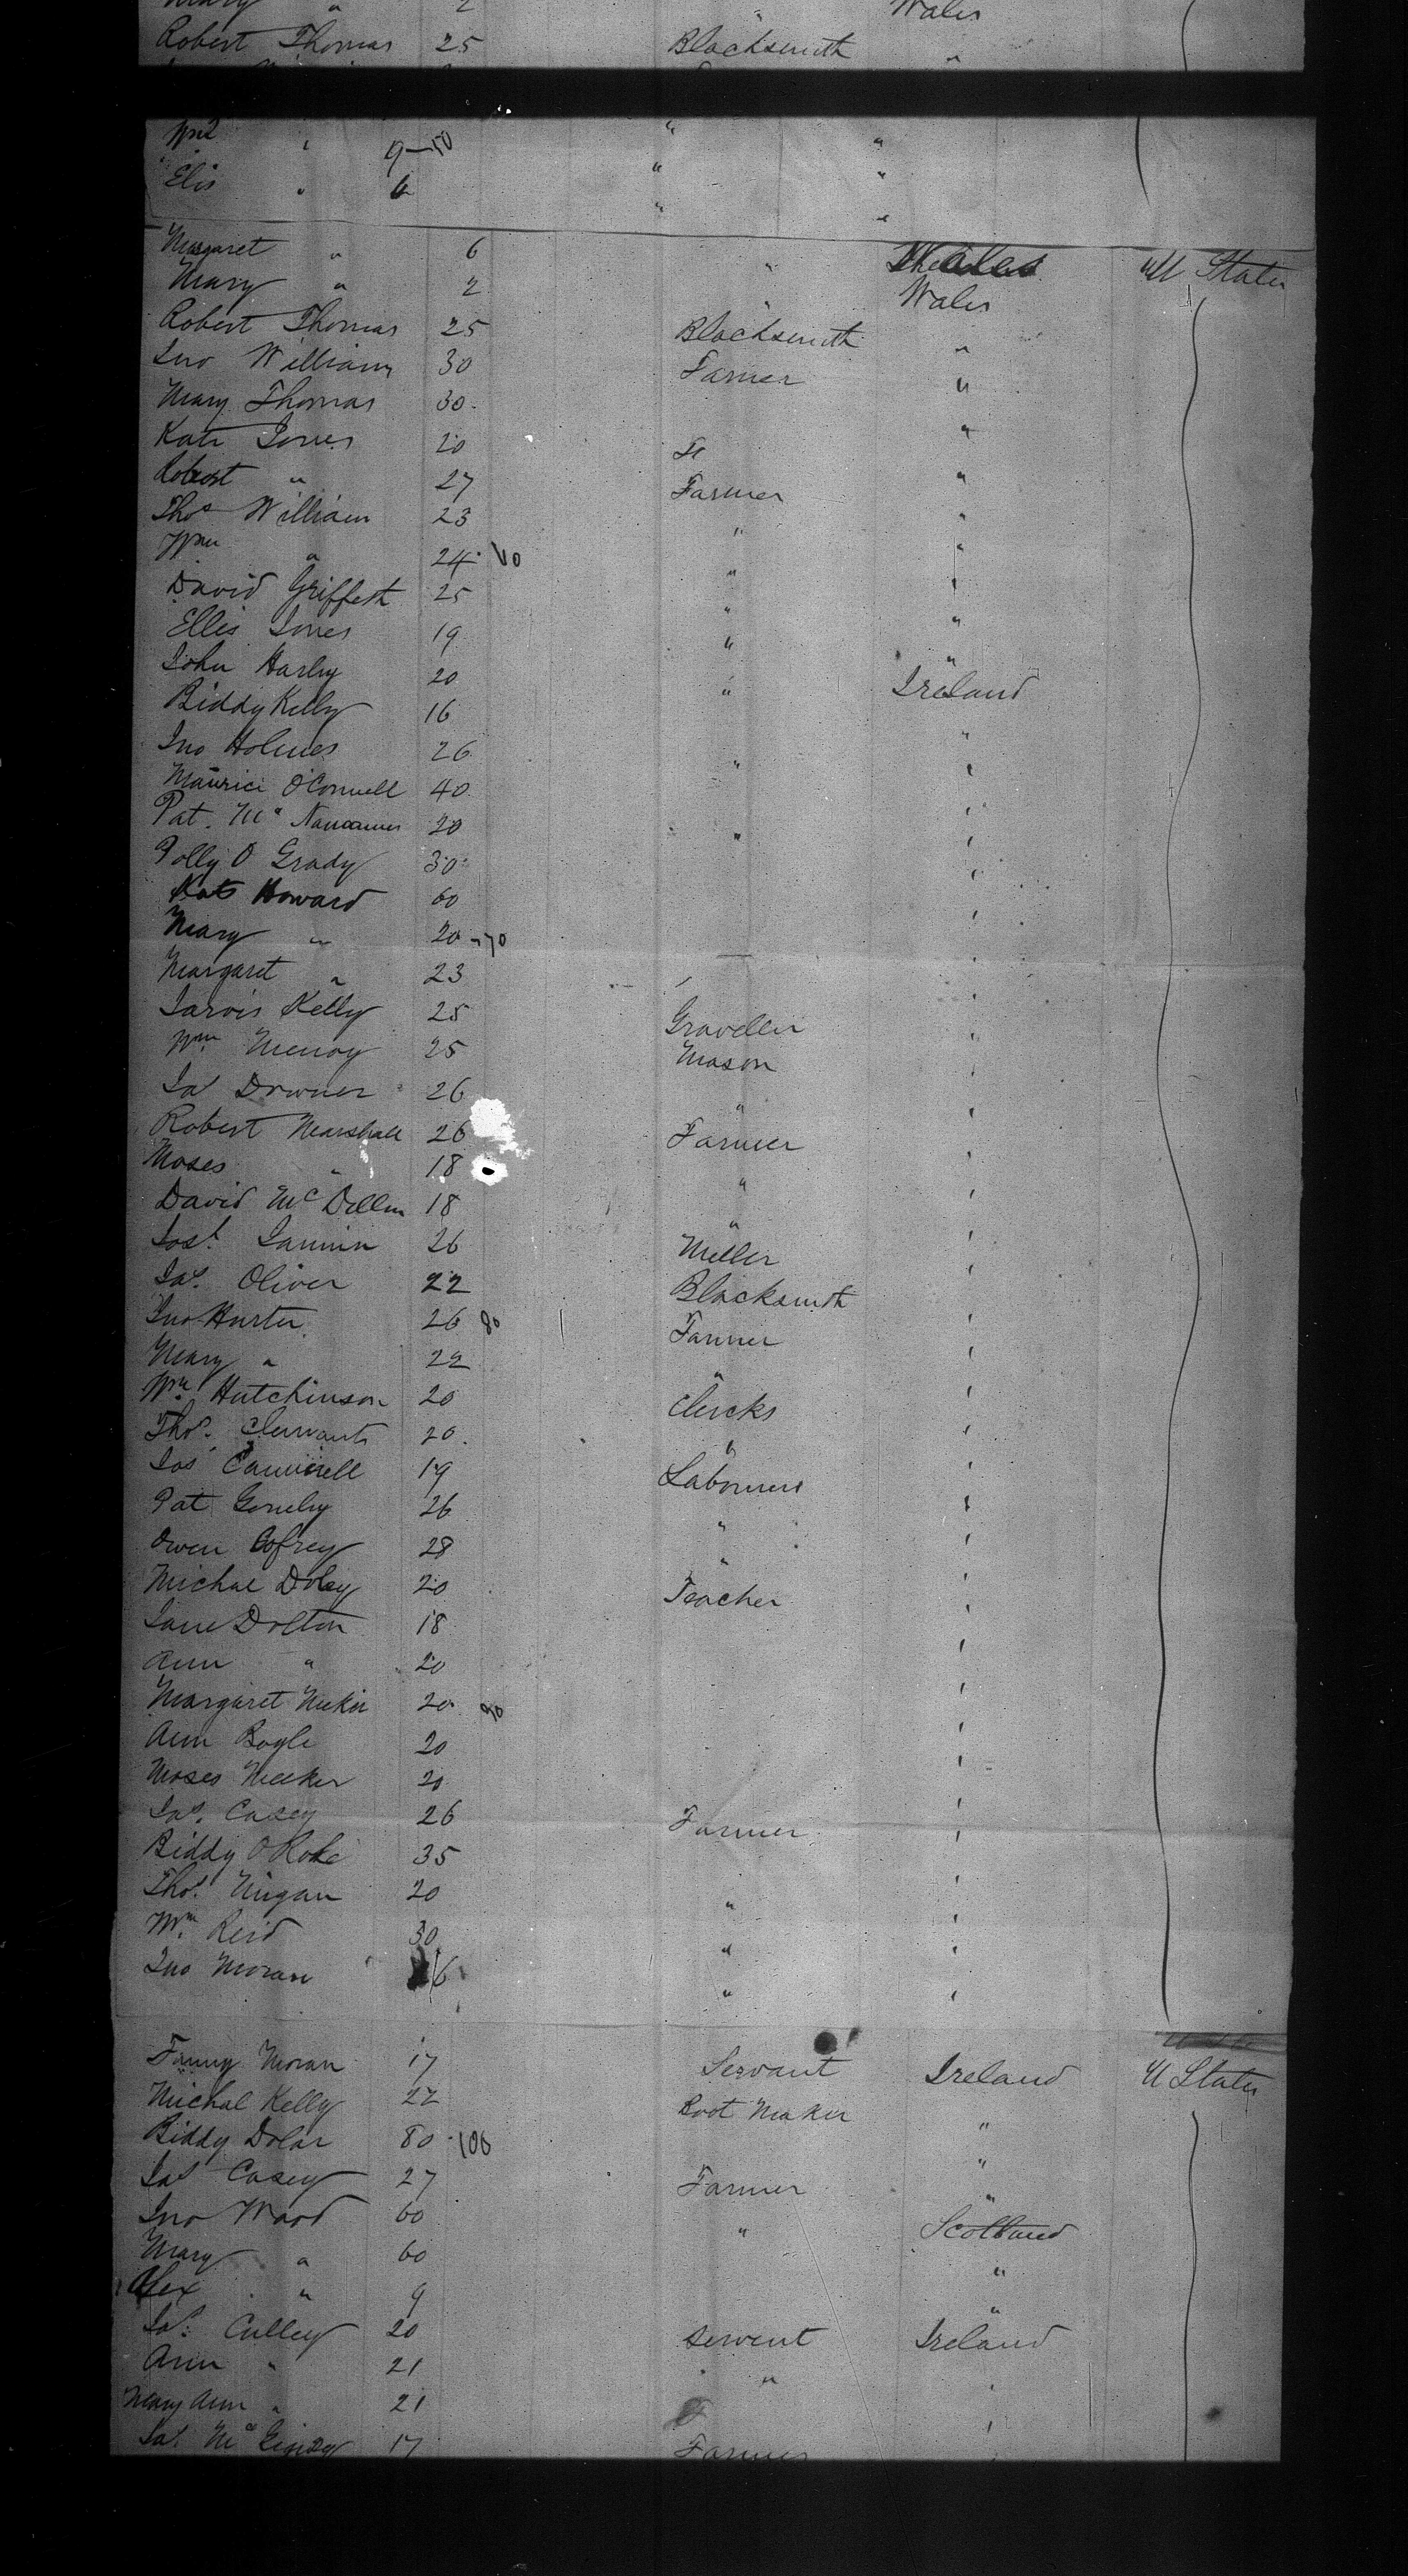 Mary " 2 Wales
Robert Thomas 25 Blacksmith "
Wm " 9 50 " "
Elis " 6 " "
Margaret " 6 " Wales U States
Mary " 2 " Wales
Robert Thomas 25 Blacksmith "
Jno William 30 Farmer "
Mary Thomas 30 "
Kate Jones 20 "
Robert " 27 Farmer "
Thos William 23 " "
Wm " 24 60 " "
David Griffeth 25 " "
Ellis Jones 19 " "
John Harley 20 " Ireland
Biddy Kelly 16 "
Jno Holmes 26 " "
Maurice O'Connell 40 "
Pat. Mc 20 " "
Polly O Grady 30 "
Kate Howard 60 "
Mary " 20 70 "
Margaret " 23 "
Jarvis Kelly 25 Graveller "
Wm 25 Mason "
Jas Downer 26 " "
Robert Marshall 26 Farmer "
Moses " 18 " "
David Mc Dellm 18 " "
26 Miller "
Jas. Oliver 22 Blacksmith "
Jno Hurter 26 80 Farmer "
Mary " 22 " "
Wm Hutchinson 20 Clercks "
Thos. 20 " "
Jas 19 Labourers "
Pat 26 " "
Owen Cofrey 28 " "
Michal Doley 20 Teacher "
Jane Dolton 18 "
Ann " 20 "
Margaret Meeker 20 90 "
Ann Bogle 20 "
Moses Meeker 20 "
Jas. Casey 26 Farmer "
Biddy O Roke 35 "
Thos. 20 " "
Wm. Reid 30 " "
Jno Moran 6 " "
Fanny Moran 17 Servant Ireland U States
Michal Kelly 22 Boot Maker "
Biddy Dolar 80 100 "
Jas Casey 27 Farmer "
Jno Wood 60 " Scotland
Mary " 60 "
Alex " 9 "
Jas. Culley 20 servent Ireland
Ann " 21 " "
Mary Ann " 21 "
Jas. Mc 17 Farmer "